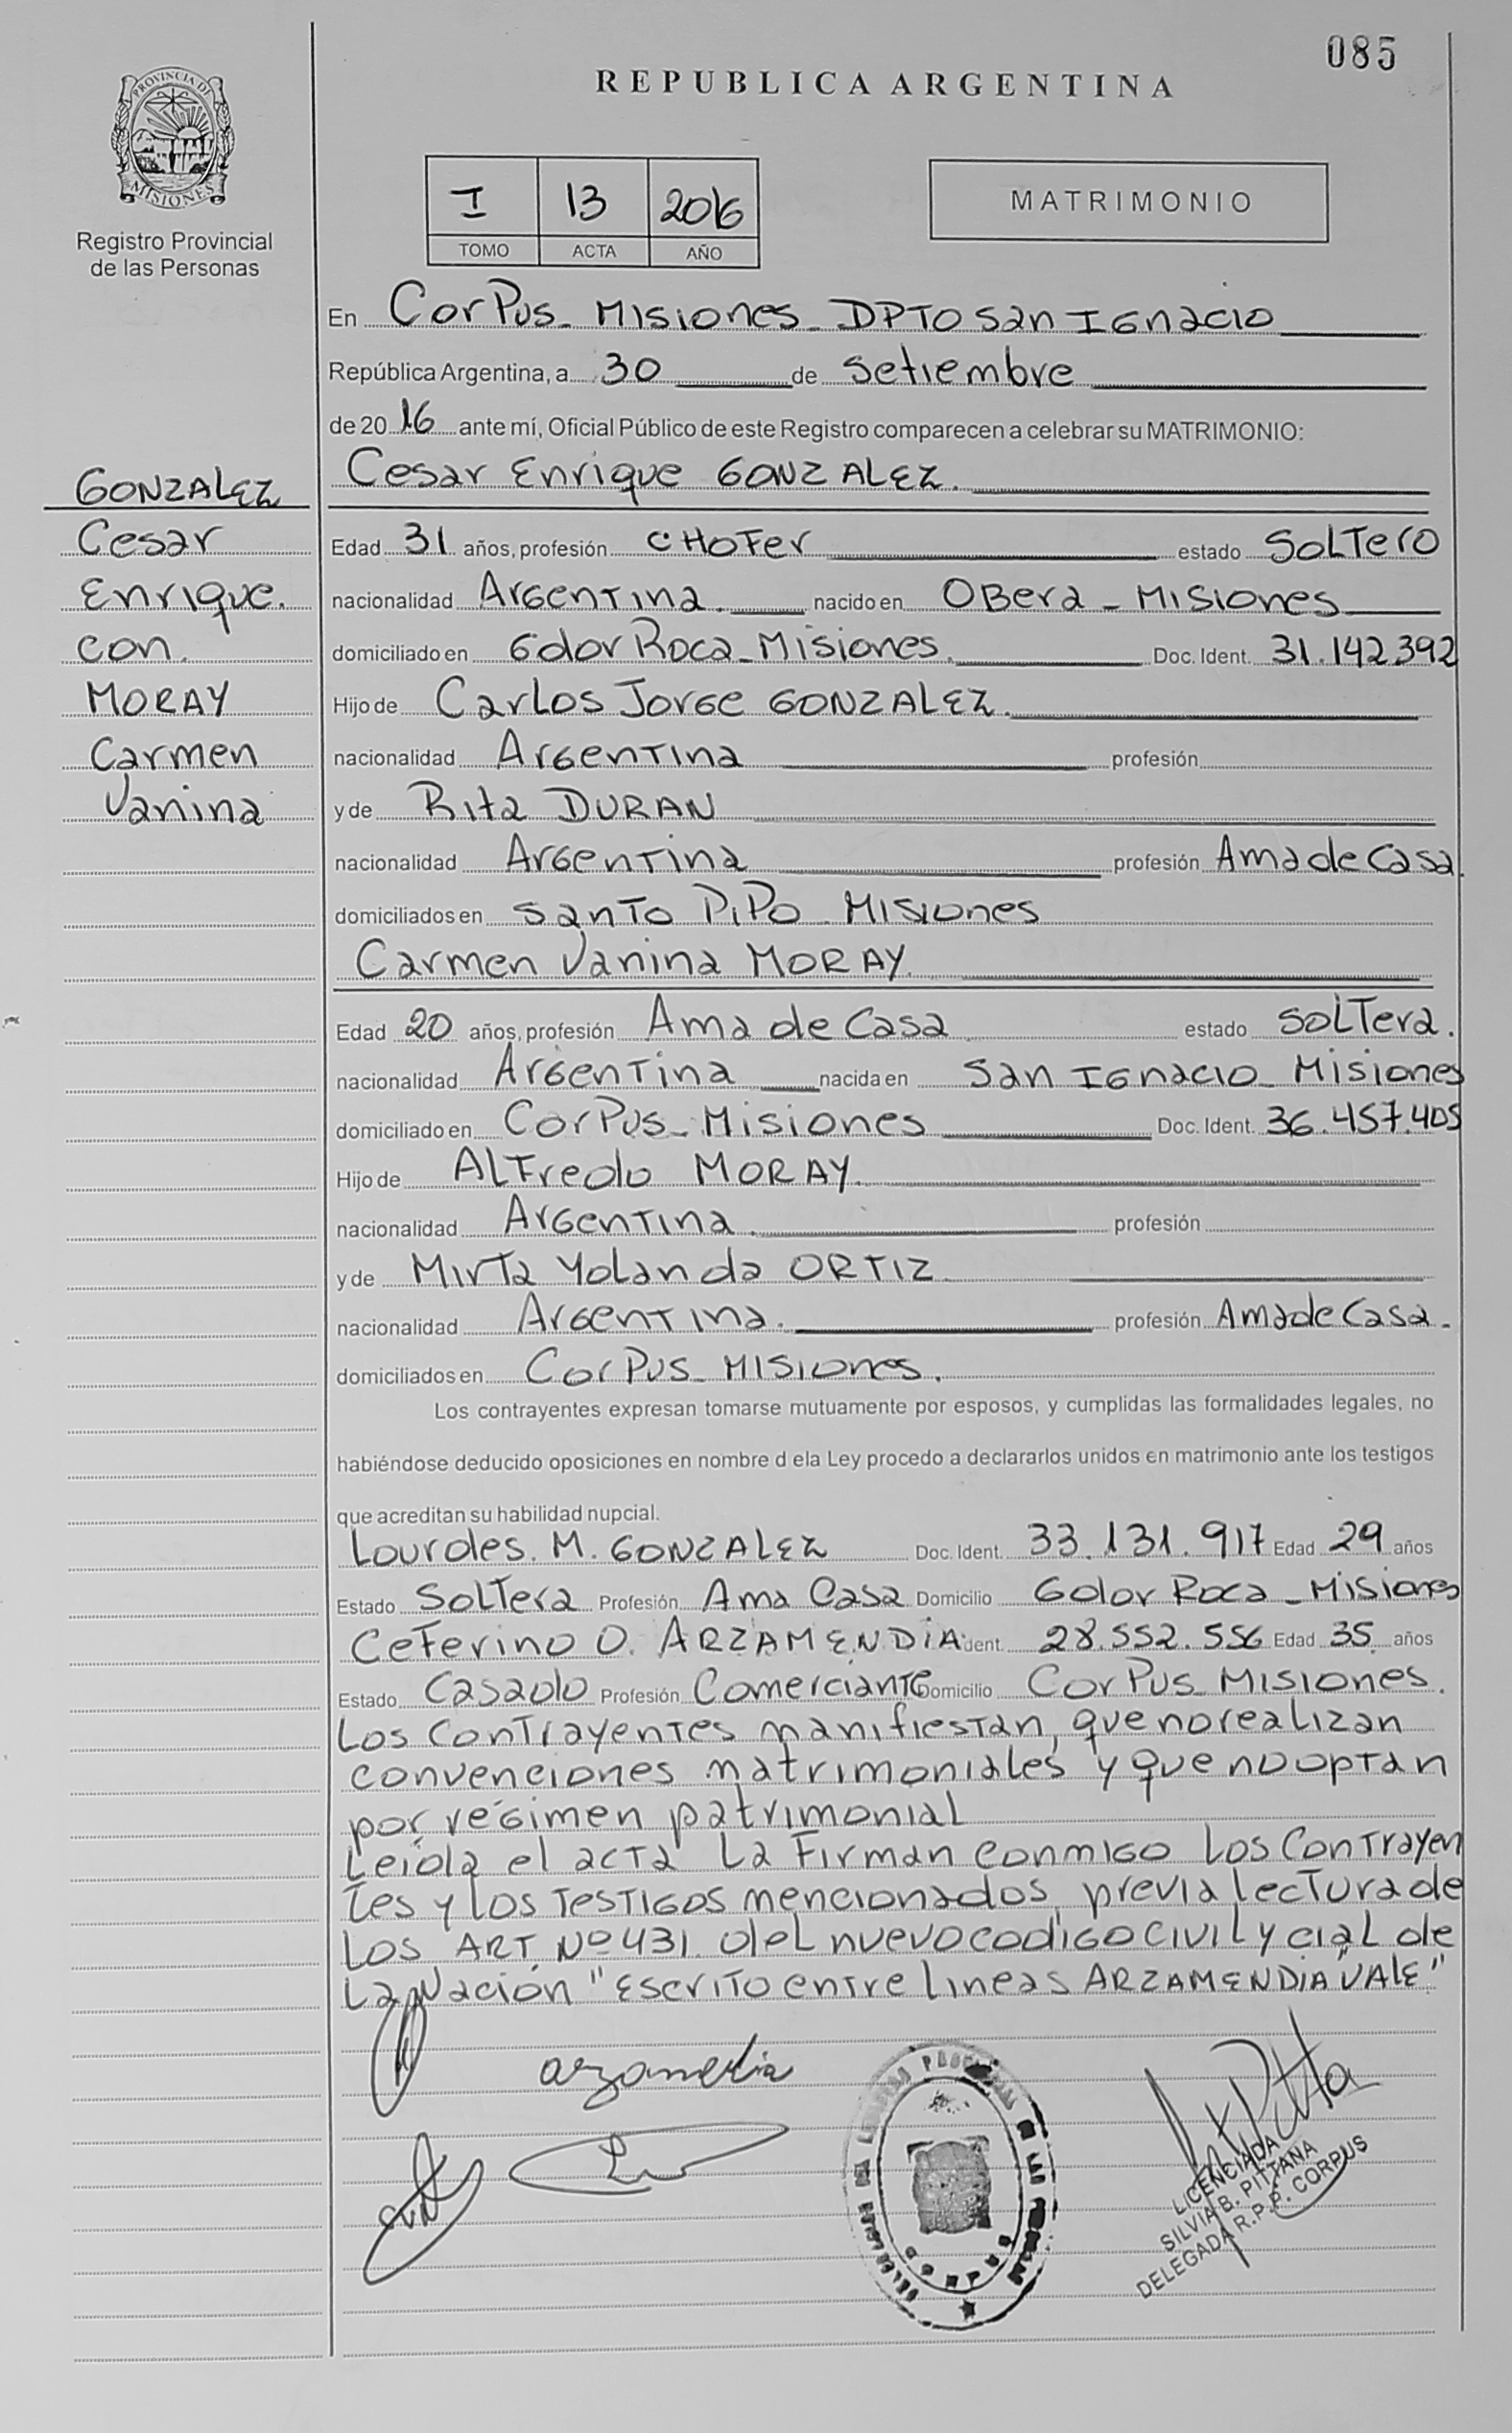 085
REPUBLICA ARGENTINA
PROVINCIA DE
MISIONES
Registro Provincial
de las Personas
I 13 2016
TOMO ACTA AÑO
MATRIMONIO
En Corpus - Misiones - DPTO San Ignacio
República Argentina, a 30 de Setiembre
de 20 16 ante mí, Oficial Público de este Registro comparecen a celebrar su MATRIMONIO:
GONZALEZ
Cesar
Enrique.
con.
MORAY
Carmen
Vanina
Cesar Enrique GONZALEZ.
Edad 31 años, profesión CHOFer estado SOLTerO
nacionalidad Argentina. nacido en OBera - Misiones
domiciliado en Gdor Roca - Misiones. Doc. Ident. 31.142.392
Hijo de Carlos Jorge GONZALEZ.
nacionalidad Argentina profesión
y de Rita DURAN
nacionalidad Argentina profesión Ama de Casa.
domiciliados en Santo Pipo - Misiones
Carmen Vanina MORAY.
Edad 20 años, profesión Ama de Casa estado SOLTera.
nacionalidad Argentina nacida en San Ignacio - Misiones
domiciliado en Corpus - Misiones Doc. Ident. 36.457.405
Hijo de Alfredo MORAY.
nacionalidad Argentina. profesión
y de Mirta Yolanda ORTIZ
nacionalidad Argentina. profesión Ama de Casa.
domiciliados en Corpus - Misiones.
Los contrayentes expresan tomarse mutuamente por esposos, y cumplidas las formalidades legales, no
habiéndose deducido oposiciones en nombre d ela Ley procedo a declararlos unidos en matrimonio ante los testigos
que acreditan su habilidad nupcial.
Lourdes. M. GONZALEZ Doc. Ident. 33.131.917 Edad 29 años
Estado Soltera Profesión Ama Casa Domicilio Gdor Roca - Misiones
Ceferino O. ARZAMENDIA ident. 28.552.556 Edad 35 años
Estado Casado Profesión Comerciante Domicilio Corpus - Misiones.
Los Contrayentes manifiestan, que no realizan
convenciones matrimoniales y que no optan
por régimen patrimonial
Leida el acta La Firman conmigo Los Contrayen
tes y los Testigos mencionados, previa lectura de
Los ART. Nº 431. del nuevo codigo civil y cial de
La Nación "Escrito entre lineas ARZAMENDIA VALE"
arzamendia
LICENCIADA
SILVIA B. PITTANA
DELEGADA R.P.P. CORPUS